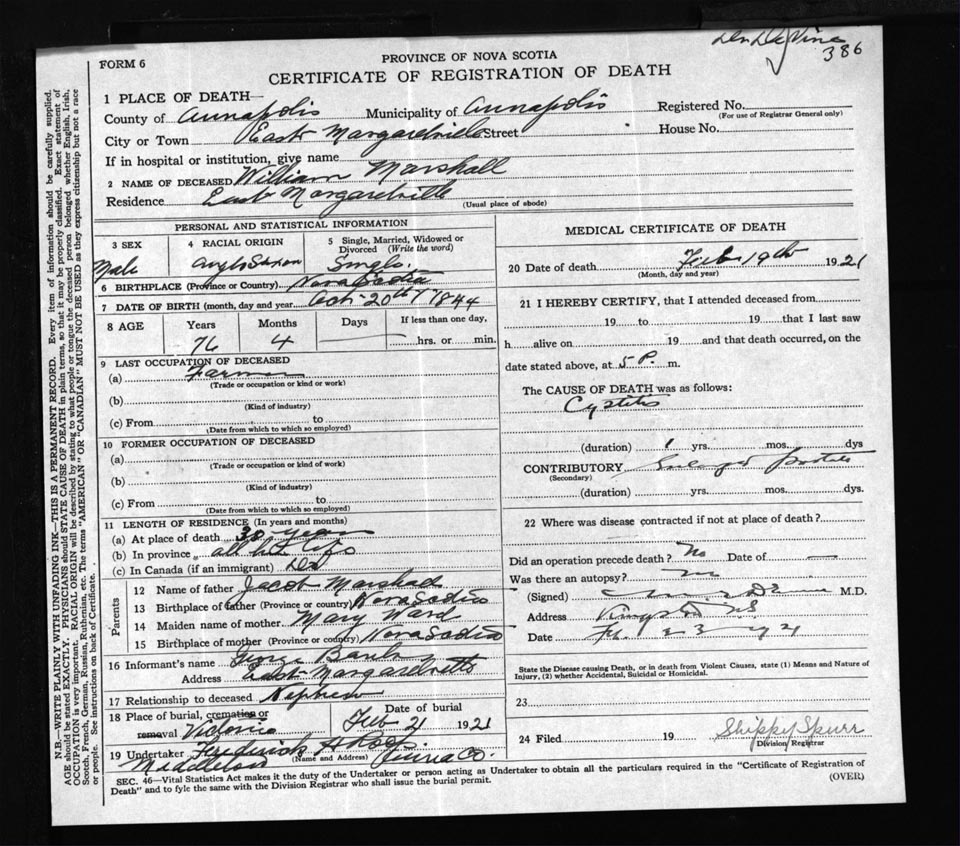 386
FORM 6
PROVINCE OF NOVA SCOTIA
CERTIFICATE OF REGISTRATION OF DEATH
1 PLACE OF DEATH—
County of Annapolis Municipality of Annapolis Registered No.
(For use of Registrar General only)
City or Town East Margaretville Street House No.
If in hospital or institution, give name
2 NAME OF DECEASED William Marshall
Residence East Margaretville
(Usual place of abode)
PERSONAL AND STATISTICAL INFORMATION
3 SEX
Male
4 RACIAL ORIGIN
Anglo Saxon
5 Single, Married, Widowed or Divorced (Write the word)
Single
6 BIRTHPLACE (Province or Country) Nova Scotia
7 DATE OF BIRTH (month, day and year) Oct 20th 1844
8 AGE
Years
76
Months
4
Days
If less than one day,
hrs. or min.
9 LAST OCCUPATION OF DECEASED
(a) Farmer
(Trade or occupation or kind or work)
(b)
(Kind of industry)
(c) From to
(Date from which to which so employed)
10 FORMER OCCUPATION OF DECEASED
(a)
(Trade or occupation or kind of work)
(b)
(Kind of industry)
(c) From to
(Date from which to which so employed)
11 LENGTH OF RESIDENCE (In years and months)
(a) At place of death 30 years
(b) In province all his life
(c) In Canada (if an immigrant)
Parents
12 Name of father Jacob Marshall
13 Birthplace of father (Province or country) Nova Scotia
14 Maiden name of mother Mary Ward
15 Birthplace of mother (Province or country) Nova Scotia
16 Informant's name George Banks
Address East Margaretville
17 Relationship to deceased Nephew
18 Place of burial, cremation or removal Victoria
Date of burial
Feb 21 1921
19 Undertaker Frederick H Roop
(Name and Address)
Middleton
MEDICAL CERTIFICATE OF DEATH
20 Date of death Feb 19th 1921
(Month, day and year)
21 I HEREBY CERTIFY, that I attended deceased from
19 to 19 that I last saw
h alive on 19 and that death occurred, on the
date stated above, at 5 P. m.
The CAUSE OF DEATH was as follows:
Cystitis
(duration) 1 yrs. mos. dys
CONTRIBUTORY Enlarged prostate
(Secondary)
(duration) yrs. mos. dys.
22 Where was disease contracted if not at place of death?
Did an operation precede death? No Date of
Was there an autopsy? no
(Signed) M.D.
Address Kingston N.S.
Date
State the Disease causing Death, or in death from Violent Causes, state (1) Means and Nature of
Injury, (2) whether Accidental, Suicidal or Homicidal.
23
24 Filed 19 Shippy Spurr
Division Registrar
SEC. 46—Vital Statistics Act makes it the duty of the Undertaker or person acting as Undertaker to obtain all the particulars required in the "Certificate of Registration of
Death" and to fyle the same with the Division Registrar who shall issue the burial permit.
(OVER)
N.B.—WRITE PLAINLY WITH UNFADING INK—THIS IS A PERMANENT RECORD. Every item of information should be carefully supplied.
AGE should be stated EXACTLY. PHYSICIANS should STATE CAUSE OF DEATH in plain terms, so that it may be properly classified. Exact statement of
OCCUPATION is very important. RACIAL ORIGIN will be described by stating to what people or tongue the deceased person belonged whether English, Irish,
Scotch, French, German, Russian, Ruthenian, etc. The terms "AMERICAN" OR "CANADIAN" MUST NOT BE USED as they express citizenship but not a race
or people. See instructions on back of Certificate.